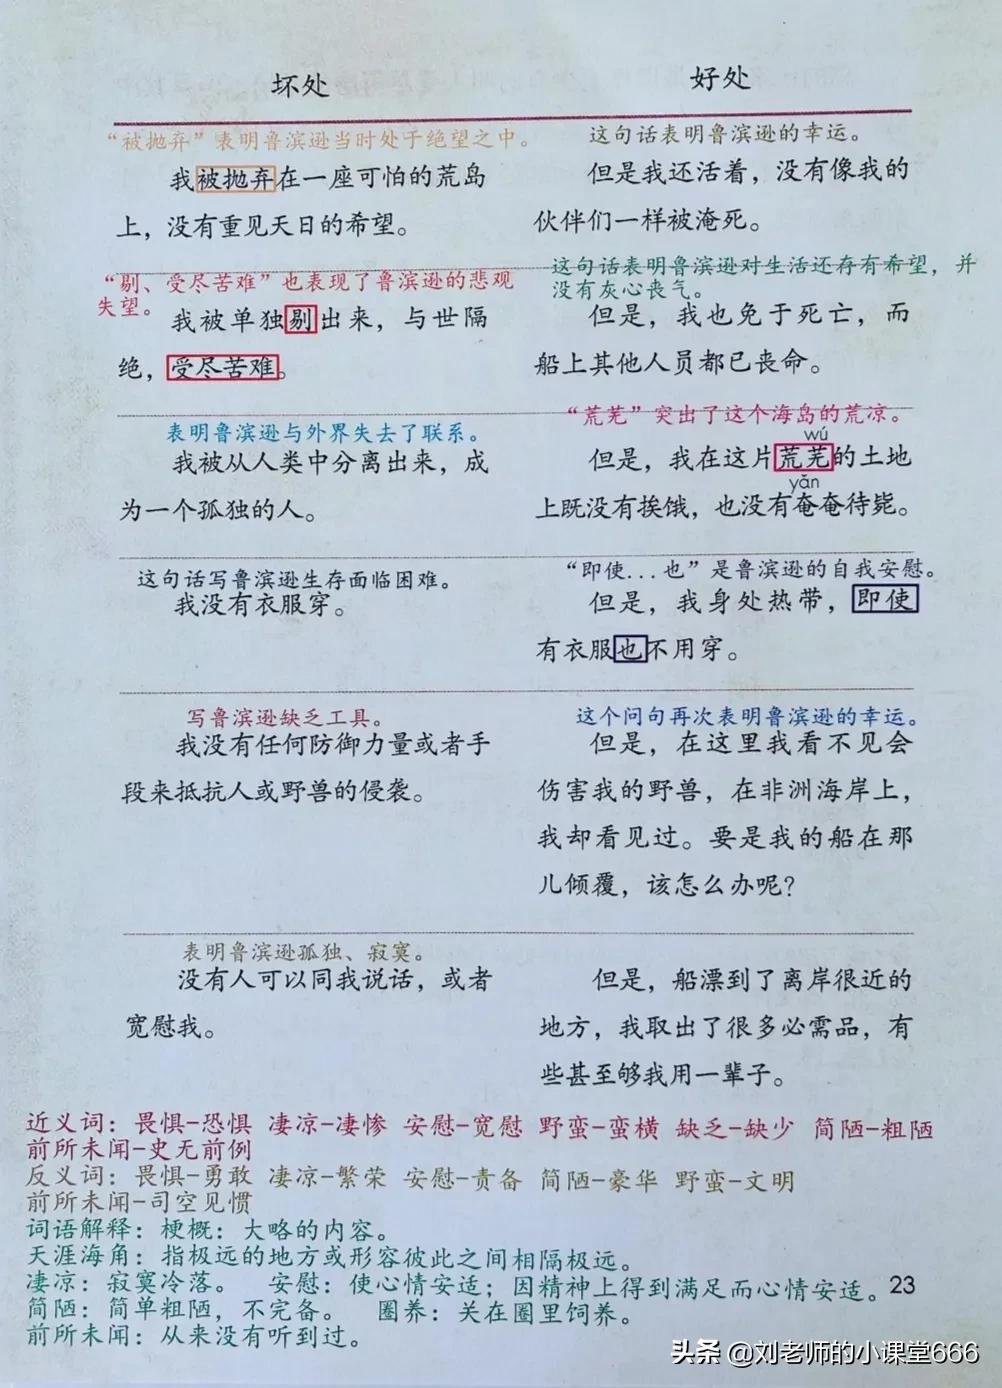 坏处
好处
“被抛弃”表明鲁滨逊当时处于绝望之中。
我被抛弃在一座可怕的荒岛
上，没有重见天日的希望。
这句话表明鲁滨逊的幸运。
但是我还活着，没有像我的
伙伴们一样被淹死。
“剔、受尽苦难”也表现了鲁滨逊的悲观
失望。
我被单独剔出来，与世隔
绝，受尽苦难。
这句话表明鲁滨逊对生活还存有希望，并
没有灰心丧气。
但是，我也免于死亡，而
船上其他人员都已丧命。
表明鲁滨逊与外界失去了联系。
我被从人类中分离出来，成
为一个孤独的人。
“荒芜”突出了这个海岛的荒凉。
wú
但是，我在这片荒芜的土地
yǎn
上既没有挨饿，也没有奄奄待毙。
这句话写鲁滨逊生存面临困难。
我没有衣服穿。
“即使...也”是鲁滨逊的自我安慰。
但是，我身处热带，即使
有衣服也不用穿。
写鲁滨逊缺乏工具。
我没有任何防御力量或者手
段来抵抗人或野兽的侵袭。
这个问句再次表明鲁滨逊的幸运。
但是，在这里我看不见会
伤害我的野兽，在非洲海岸上，
我却看见过。要是我的船在那
儿倾覆，该怎么办呢？
表明鲁滨逊孤独、寂寞。
没有人可以同我说话，或者
宽慰我。
但是，船漂到了离岸很近的
地方，我取出了很多必需品，有
些甚至够我用一辈子。
近义词：畏惧-恐惧 凄凉-凄惨 安慰-宽慰 野蛮-蛮横 缺乏-缺少 简陋-粗陋
前所未闻-史无前例
反义词：畏惧-勇敢 凄凉-繁荣 安慰-责备 简陋-豪华 野蛮-文明
前所未闻-司空见惯
词语解释：梗概：大略的内容。
天涯海角：指极远的地方或形容彼此之间相隔极远。
凄凉：寂寞冷落。 安慰：使心情安适；因精神上得到满足而心情安适。
23
简陋：简单粗陋，不完备。 圈养：关在圈里饲养。
前所未闻：从来没有听到过。
头条 @刘老师的小课堂666